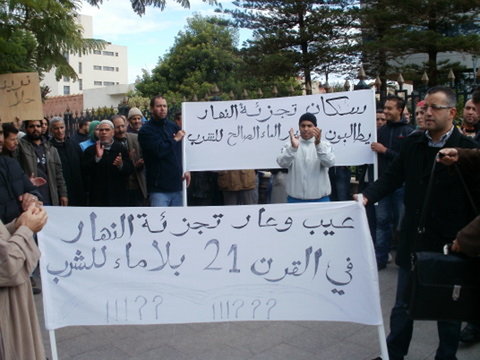 سكان تجزئة النهار
يطالبون بالماء الصالح للشرب
عيب وعار تجزئة النهار
في القرن 21 بلا ماء للشرب
!!!؟؟ !!!؟؟؟